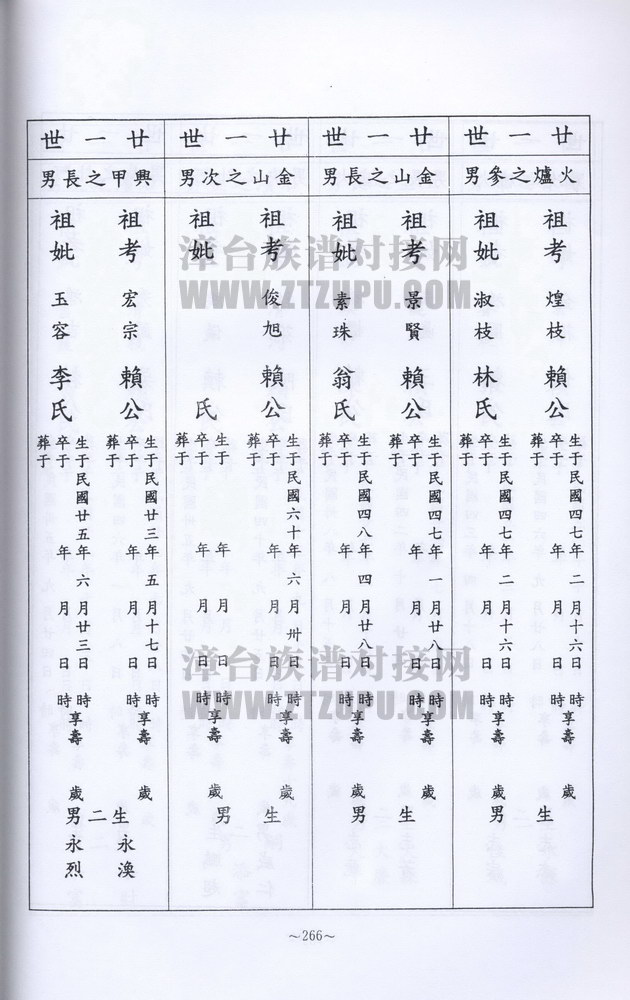 廿一世
火爐之參男
祖考 煌枝 賴公
生于民國四七年 二 月十六日 時享壽 歲
卒于 年 月 日 時
葬于
祖妣 淑枝 林氏
生于民國四七年 二 月十六日 時享壽 歲
卒于 年 月 日 時
葬于
生 男
廿一世
金山之長男
祖考 景賢 賴公
生于民國四七年 一 月廿八日 時享壽 歲
卒于 年 月 日 時
葬于
祖妣 素珠 翁氏
生于民國四八年 四 月廿八日 時享壽 歲
卒于 年 月 日 時
葬于
生 男
廿一世
金山之次男
祖考 俊旭 賴公
生于民國六十年 六 月卅日 時享壽 歲
卒于 年 月 日 時
葬于
祖妣 氏
生于 年 月 日 時享壽 歲
卒于 年 月 日 時
葬于
生 男
廿一世
興甲之長男
祖考 宏宗 賴公
生于民國廿三年 五 月十七日 時享壽 歲
卒于 年 月 日 時
葬于
祖妣 玉容 李氏
生于民國廿五年 六 月廿三日 時享壽 歲
卒于 年 月 日 時
葬于
生二男
永渙
永烈
～266～
漳台族谱对接网
WWW.ZTZUPU.COM
漳台族谱对接网
WWW.ZTZUPU.COM